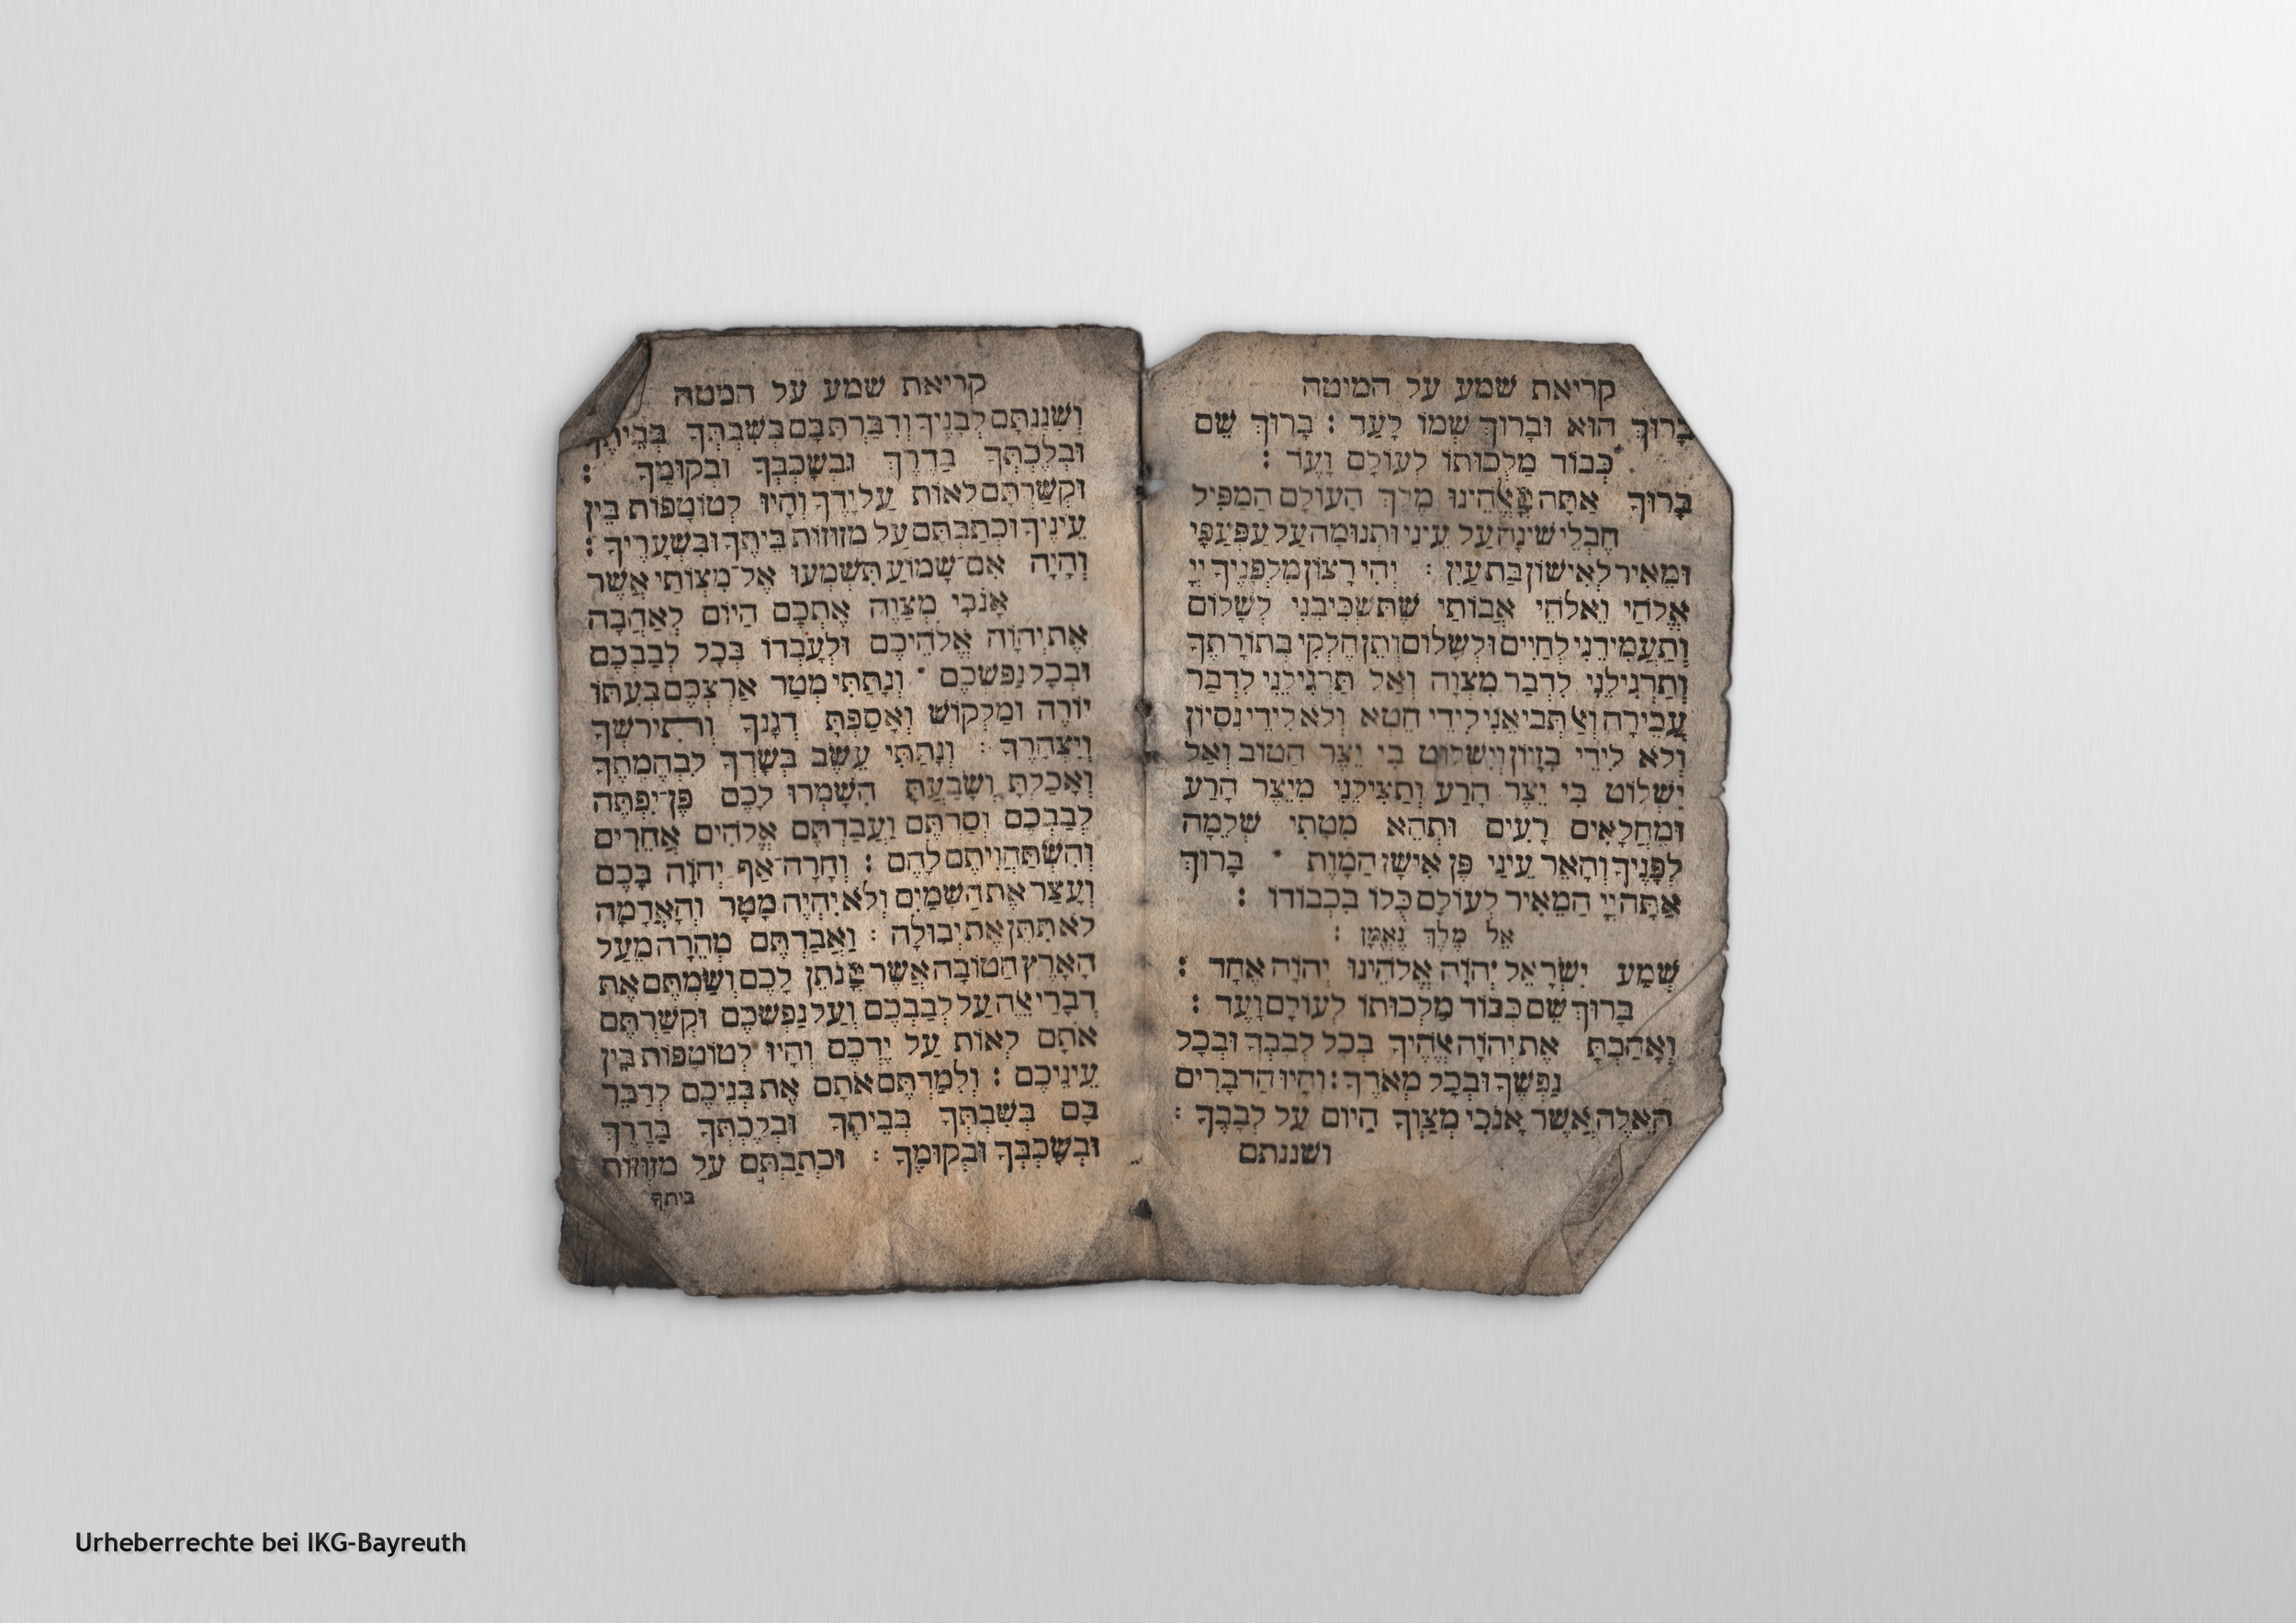 קריאת שמע על המיטה
בָּרוּךְ הוּא וּבָרוּךְ שְׁמוֹ לָעַד : בָּרוּךְ שֵׁם
כְּבוֹד מַלְכוּתוֹ לְעוֹלָם וָעֶד :
בָּרוּךְ אַתָּה יְיָ אֱלֹהֵינוּ מֶלֶךְ הָעוֹלָם הַמַּפִּיל
חֶבְלֵי שֵׁינָה עַל עֵינַי וּתְנוּמָה עַל עַפְעַפָּי
וּמֵאִיר לְאִישׁוֹן בַּת עַיִן : יְהִי רָצוֹן מִלְּפָנֶיךָ יְיָ
אֱלֹהַי וֵאלֹהֵי אֲבוֹתַי שֶׁתַּשְׁכִּיבֵנִי לְשָׁלוֹם
וְתַעֲמִידֵנִי לְחַיִּים וּלְשָׁלוֹם וְתֵן חֶלְקִי בְּתוֹרָתֶךָ
וְתַרְגִּילֵנִי לִדְבַר מִצְוָה וְאַל תַּרְגִּילֵנִי לִדְבַר
עֲבֵירָה וְאַל תְּבִיאֵנִי לִידֵי חֵטְא וְלֹא לִידֵי נִסָּיוֹן
וְלֹא לִידֵי בִזָּיוֹן וְיִשְׁלוֹט בִּי יֵצֶר הַטּוֹב וְאַל
יִשְׁלוֹט בִּי יֵצֶר הָרַע וְתַצִּילֵנִי מִיֵּצֶר הָרַע
וּמֵחֳלָאִים רָעִים וּתְהֵא מִטָּתִי שְׁלֵמָה
לְפָנֶיךָ וְהָאֵר עֵינַי פֶּן אִישַׁן הַמָּוֶת · בָּרוּךְ
אַתָּה יְיָ הַמֵּאִיר לְעוֹלָם כֻּלּוֹ בִּכְבוֹדוֹ :
אֵל מֶלֶךְ נֶאֱמָן :
שְׁמַע יִשְׂרָאֵל יְהוָֹה אֱלֹהֵינוּ יְהוָֹה אֶחָד :
בָּרוּךְ שֵׁם כְּבוֹד מַלְכוּתוֹ לְעוֹלָם וָעֶד :
וְאָהַבְתָּ אֶת יְהוָֹה אֱלֹהֶיךָ בְּכָל לְבָבְךָ וּבְכָל
נַפְשְׁךָ וּבְכָל מְאֹדֶךָ : וְהָיוּ הַדְּבָרִים
הָאֵלֶּה אֲשֶׁר אָנֹכִי מְצַוְּךָ הַיּוֹם עַל לְבָבֶךָ :
ושננתם
קריאת שמע על המטה
וְשִׁנַּנְתָּם לְבָנֶיךָ וְדִבַּרְתָּ בָּם בְּשִׁבְתְּךָ בְּבֵיתֶךָ
וּבְלֶכְתְּךָ בַדֶּרֶךְ וּבְשָׁכְבְּךָ וּבְקוּמֶךָ :
וּקְשַׁרְתָּם לְאוֹת עַל יָדֶךָ וְהָיוּ לְטוֹטָפוֹת בֵּין
עֵינֶיךָ וּכְתַבְתָּם עַל מְזוּזוֹת בֵּיתֶךָ וּבִשְׁעָרֶיךָ :
וְהָיָה אִם־שָׁמוֹעַ תִּשְׁמְעוּ אֶל־מִצְוֹתַי אֲשֶׁר
אָנֹכִי מְצַוֶּה אֶתְכֶם הַיּוֹם לְאַהֲבָה
אֶת יְהוָֹה אֱלֹהֵיכֶם וּלְעָבְדוֹ בְּכָל לְבַבְכֶם
וּבְכָל נַפְשְׁכֶם · וְנָתַתִּי מְטַר אַרְצְכֶם בְּעִתּוֹ
יוֹרֶה וּמַלְקוֹשׁ וְאָסַפְתָּ דְגָנֶךָ וְתִירֹשְׁךָ
וְיִצְהָרֶךָ : וְנָתַתִּי עֵשֶׂב בְּשָׂדְךָ לִבְהֶמְתֶּךָ
וְאָכַלְתָּ וְשָׂבָעְתָּ הִשָּׁמְרוּ לָכֶם פֶּן־יִפְתֶּה
לְבַבְכֶם וְסַרְתֶּם וַעֲבַדְתֶּם אֱלֹהִים אֲחֵרִים
וְהִשְׁתַּחֲוִיתֶם לָהֶם : וְחָרָה־אַף יְהוָֹה בָּכֶם
וְעָצַר אֶת הַשָּׁמַיִם וְלֹא יִהְיֶה מָטָר וְהָאֲדָמָה
לֹא תִתֵּן אֶת יְבוּלָהּ : וַאֲבַדְתֶּם מְהֵרָה מֵעַל
הָאָרֶץ הַטּוֹבָה אֲשֶׁר יְיָ נֹתֵן לָכֶם וְשַׂמְתֶּם אֶת
דְּבָרַי אֵלֶּה עַל לְבַבְכֶם וְעַל נַפְשְׁכֶם וּקְשַׁרְתֶּם
אֹתָם לְאוֹת עַל יֶדְכֶם וְהָיוּ לְטוֹטָפוֹת בֵּין
עֵינֵיכֶם : וְלִמַּדְתֶּם אֹתָם אֶת בְּנֵיכֶם לְדַבֵּר
בָּם בְּשִׁבְתְּךָ בְּבֵיתֶךָ וּבְלֶכְתְּךָ בַדֶּרֶךְ
וּבְשָׁכְבְּךָ וּבְקוּמֶךָ : וּכְתַבְתָּם עַל מְזוּזוֹת
ביתך
Urheberrechte bei IKG-Bayreuth